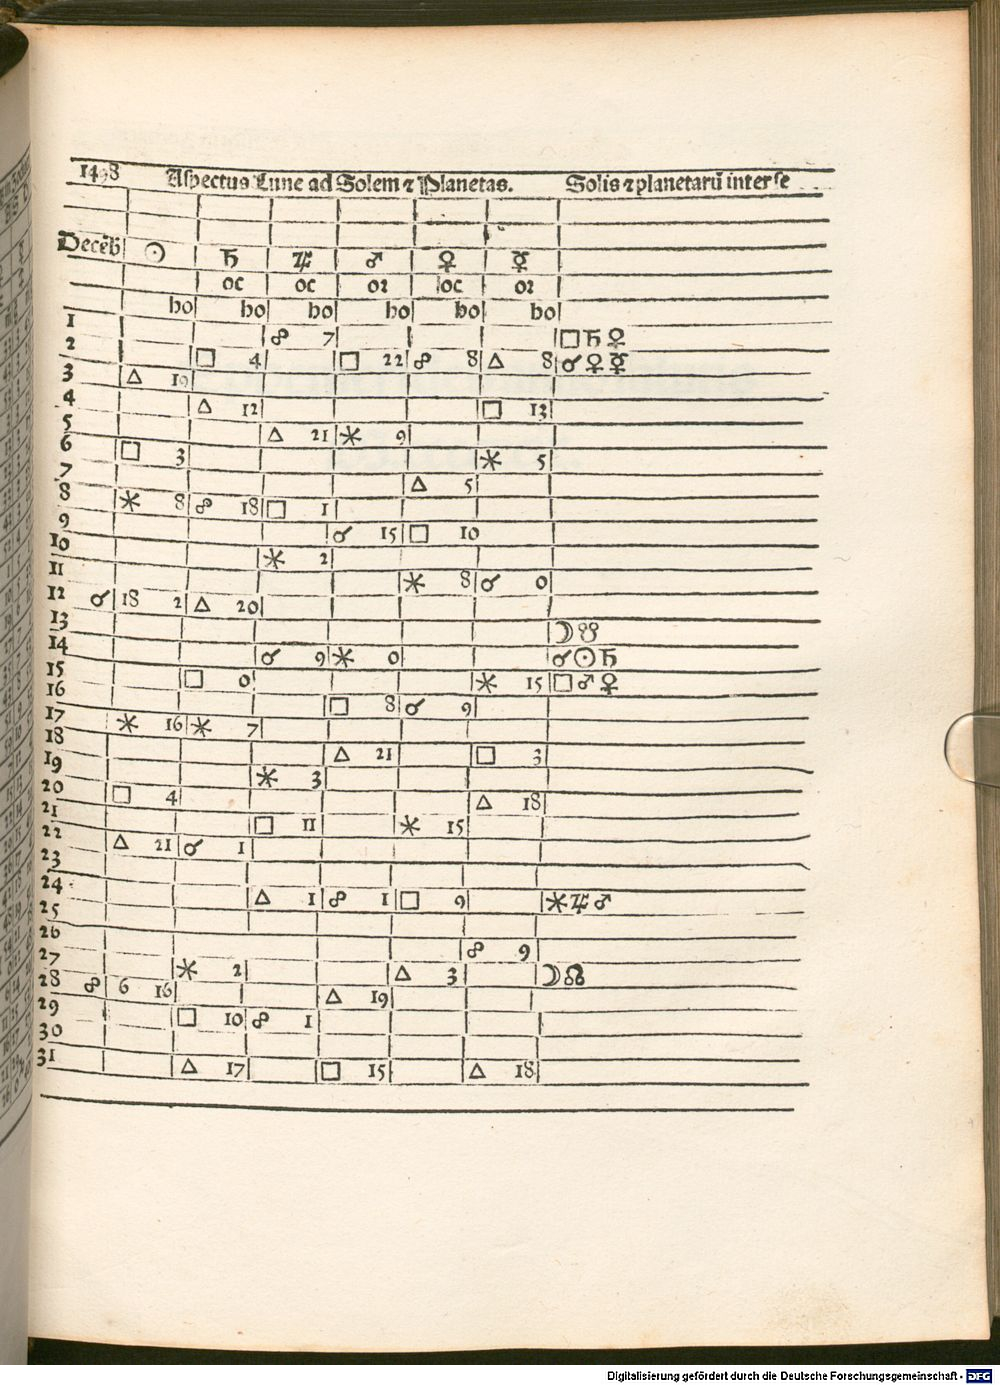 1498 Aspectus Lune ad Solem ⁊ Planetas. Solis ⁊ planetarū inter se
Decēb ☉ ♄ ♃ ♂ ♀ ☿
oc oc oꝛ oc oꝛ
ho ho ho ho ho ho
1 ☍ 7 □ ♄ ♀
2 □ 4 □ 22 ☍ 8 △ 8 ☌ ♀ ☿
3 △ 19
4 △ 12 □ 13
5 △ 21 ✶ 9
6 □ 3 ✶ 5
7 △ 5
8 ✶ 8 ☍ 18 □ 1
9 ☌ 15 □ 10
10 ✶ 2
11 ✶ 8 ☌ 0
12 ☌ 18 2 △ 20
13 ☽ ☋
14 ☌ 9 ✶ 0 ☌ ☉ ♄
15 □ 0 ✶ 15 □ ♂ ♀
16 □ 8 ☌ 9
17 ✶ 16 ✶ 7
18 △ 21 □ 3
19 ✶ 3
20 □ 4 △ 18
21 □ 11 ✶ 15
22 △ 21 ☌ 1
23
24 △ 1 ☍ 1 □ 9 ✶ ♃ ♂
25
26 ☍ 9
27 ✶ 2 △ 3 ☽ ☊
28 ☍ 6 16 △ 19
29 □ 10 ☍ 1
30
31 △ 17 □ 15 △ 18
Digitalisierung gefördert durch die Deutsche Forschungsgemeinschaft - DFG